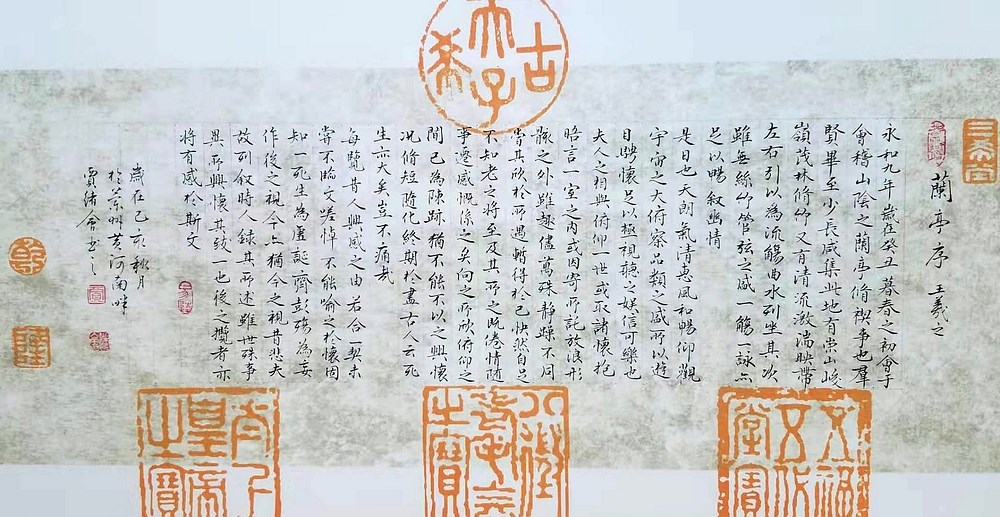 三希堂
古希天子
蘭亭序 王羲之
永和九年歲在癸丑暮春之初會于
會稽山陰之蘭亭脩禊事也羣
賢畢至少長咸集此地有崇山峻
嶺茂林脩竹又有清流激湍映帶
左右引以為流觴曲水列坐其次
雖無絲竹管弦之盛一觴一詠亦
足以暢叙幽情
是日也天朗氣清惠風和暢仰觀
宇宙之大俯察品類之盛所以遊
目騁懷足以極視聽之娛信可樂也
夫人之相與俯仰一世或取諸懷抱
晤言一室之內或因寄所託放浪形
骸之外雖趣儘萬殊靜躁不同
當其欣於所遇暫得於己快然自足
不知老之將至及其所之既倦情隨
事遷感慨係之矣向之所欣俯仰之
間已為陳跡猶不能不以之興懷
況脩短隨化終期於盡古人云死
生亦大矣豈不痛哉
每覽昔人興感之由若合一契未
嘗不臨文嗟悼不能喻之於懷固
知一死生為虛誕齊彭殤為妄
作後之視今亦猶今之視昔悲夫
故列叙時人錄其所述雖世殊事
異所興懷其致一也後之攬者亦
將有感於斯文
歲在己亥秋月
於蘭州黃河南畔
賈緒會書之
五福五代堂寶
八徵耄念之寶
太上皇帝之寶